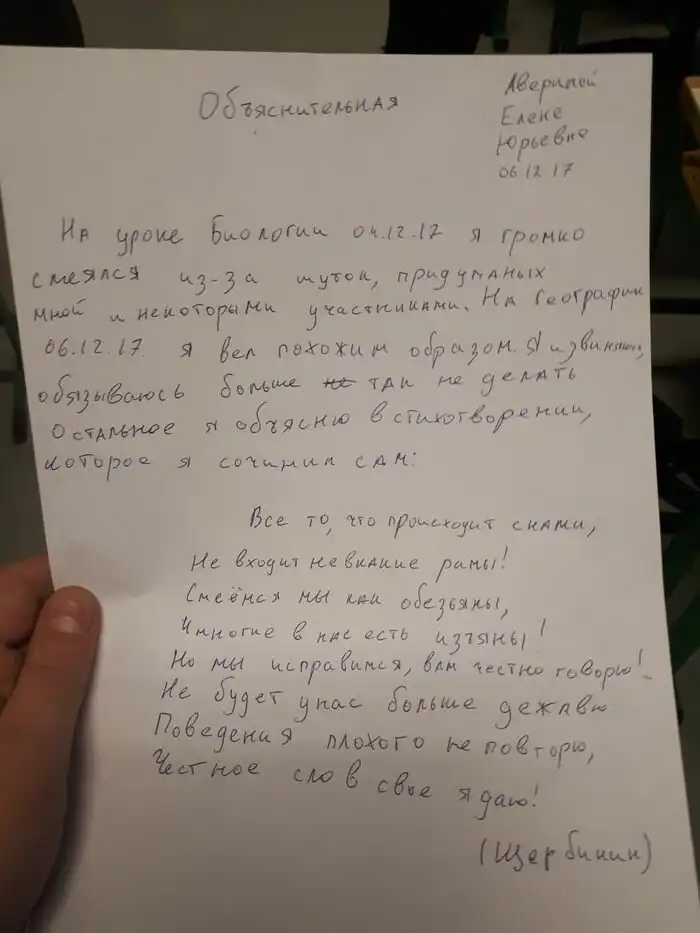 Объяснительная
Авериной
Елене
Юрьевне
06.12.17
На уроке Биологии 04.12.17 я громко
смеялся из-за шуток, придуманых
мной и некоторыми участниками. На Географии
06.12.17. я вел похожим образом. Я извиняюсь,
обязываюсь больше не так не делать
Остальное я объясню в стихотворении,
которое я сочинил сам:
Все то, что происходит с нами,
Не входит не в какие рамы!
Смеёмся мы как обезьяны,
И многие в нас есть изъяны!
Но мы исправимся, вам честно говорю!
Не будет у нас больше дежавю
Поведения плохого не повторю,
Честное слов в свое я даю!
(Щербинин)